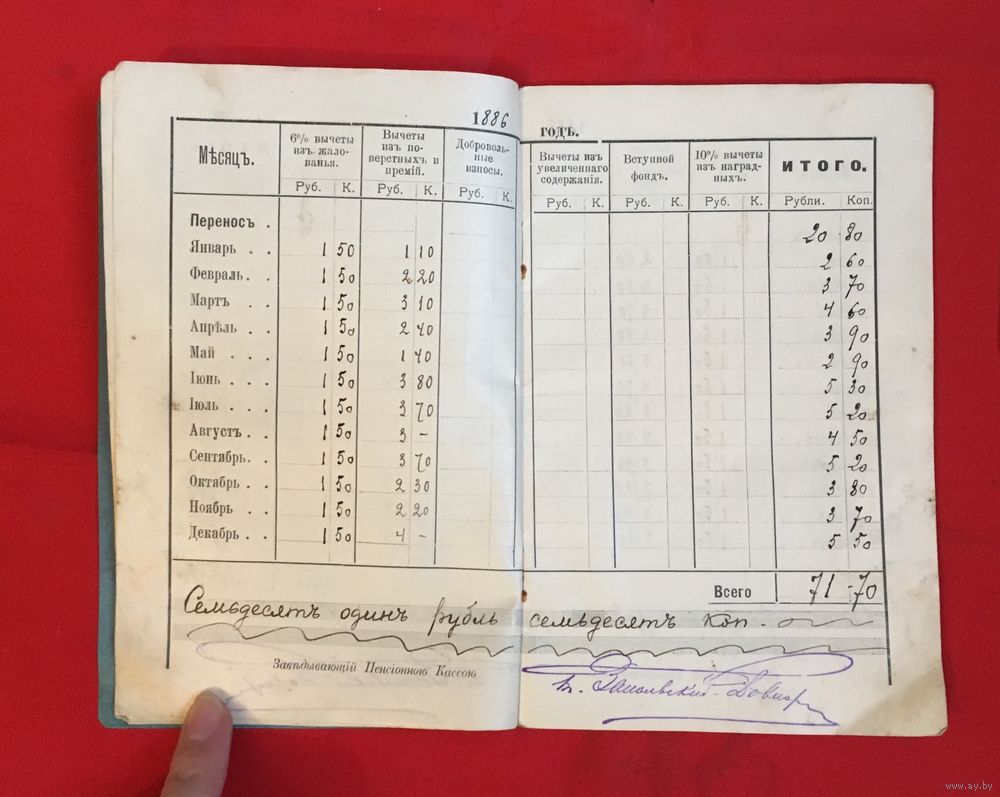 1886 годъ.
Мѣсяцъ. 6% вычеты изъ жалованья. Вычеты изъ поверстныхъ и премій. Добровольные взносы. Вычеты изъ увеличеннаго содержанія. Вступной фондъ. 10% вычеты изъ наградныхъ. ИТОГО.
Руб. К. Руб. К. Руб. К. Руб. К. Руб. К. Руб. К. Рубли. Коп.
Переносъ . 20 80
Январь . . 1 50 1 10 2 60
Февраль . . 1 50 2 20 3 70
Мартъ . . 1 50 3 10 4 60
Апрѣль . . 1 50 2 40 3 90
Май . . . 1 50 1 40 2 90
Іюнь . . . 1 50 3 80 5 30
Іюль . . . 1 50 3 70 5 20
Августъ . . 1 50 3 – 4 50
Сентябрь . . 1 50 3 70 5 20
Октябрь . . 1 50 2 30 3 80
Ноябрь . . 1 50 2 20 3 70
Декабрь . . 1 50 4 – 5 50
Всего 71 70
Семьдесятъ одинъ рубль семьдесятъ коп.
Завѣдывающій Пенсіонною Кассою
www.ay.by